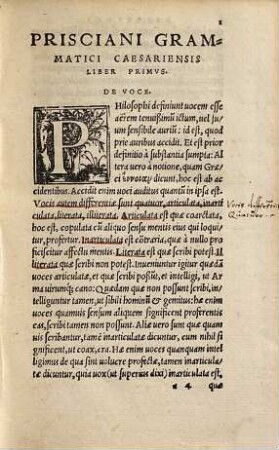 PRISCIANI GRAM-
MATICI CAESARIENSIS
LIBER PRIMVS.
DE VOCE.
PHilosophi definiunt uocem esse
aërem tenuissimũ ictum, uel su-
um sensibile aurium: id est, quod
proprie auribus accidit. Et est prior
definitio à substantia sumpta: Al-
tera uero à notione, quam Græ-
ci dicunt, hoc est ab ac
cidentibus. Accidit enim uoci auditus quantũ in ipsa est.
Vocis autem differentiæ sunt quatuor, articulata, inarti
culata, literata, illiterata. Articulata est quæ coarctata,
hoc est, copulata cũ aliquo sensu mentis eius qui loqui-
tur, profertur. Inarticulata est cõtraria, quæ à nullo profi
ciscitur affectu mentis. Literata est quæ scribi potest. Il
literata quæ scribi non potest. Inueniuntur igitur quædã
uoces articulatæ, et quæ scribi possũt, et intelligi, ut Ar
ma uirumq; cano: Quædam quæ non possunt scribi, in-
telliguntur tamen, ut sibili hominũ & gemitus: hæ enim
uoces quamuis sensum aliquem significent proferentis
eas, scribi tamen non possunt. Aliæ uero sunt quæ quam
uis scribantur, tamen inarticulatæ dicuntur, cum nihil si
gnificent, ut coax, cra. Hæ enim uoces quanquam intel-
ligimus de qua sint uolucre profectæ, tamen inarticula-
tæ dicuntur, quia uox (ut superius dixi) inarticulata est,
a 4 quæ